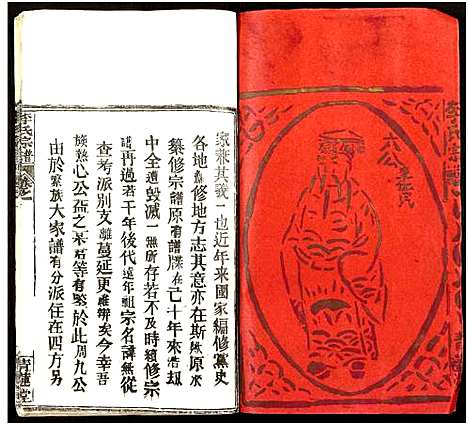 李氏宗
六公
家兼其義一也近年来國家編修黨史
各地修地方志其意亦在斯欤原水
築修宗譜原有譜牒在己十年來浩劫
中全遺毀滅一無所存若不及時續修宗
譜再過若干年後代遠年祖宗名諱無從
查考派別支離蔓延更難辨矣今幸吾
族熱心公益之某君等有鉴於此周九公
由於繁族大家譜有分派住在四方另
李氏宗譜
卷之一
青蓮堂